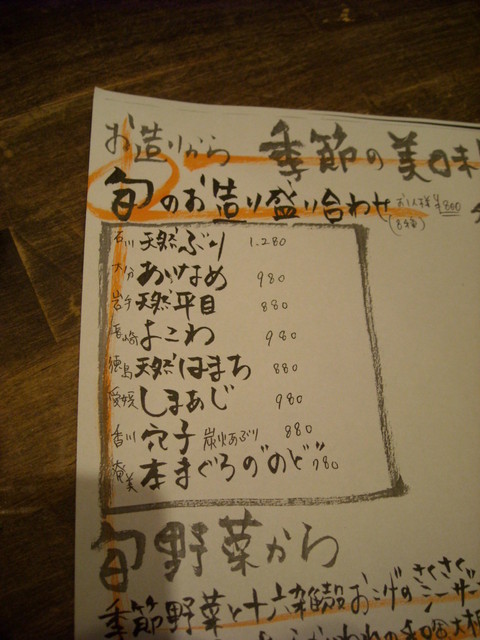 お造りから 季節の美味
旬のお造り盛り合わせ お1人様 ¥880
石川 天然ぶり 1.280
大分 あいなめ 980
岩手 天然平目 880
長崎 よこわ 980
徳島 天然はまち 880
愛媛 しまあじ 980
香川 穴子 炭火あぶり 880
奄美 本まぐろの"のど" 780
旬野菜から
季節野菜と十六雑穀おこげのさくさくシーザー